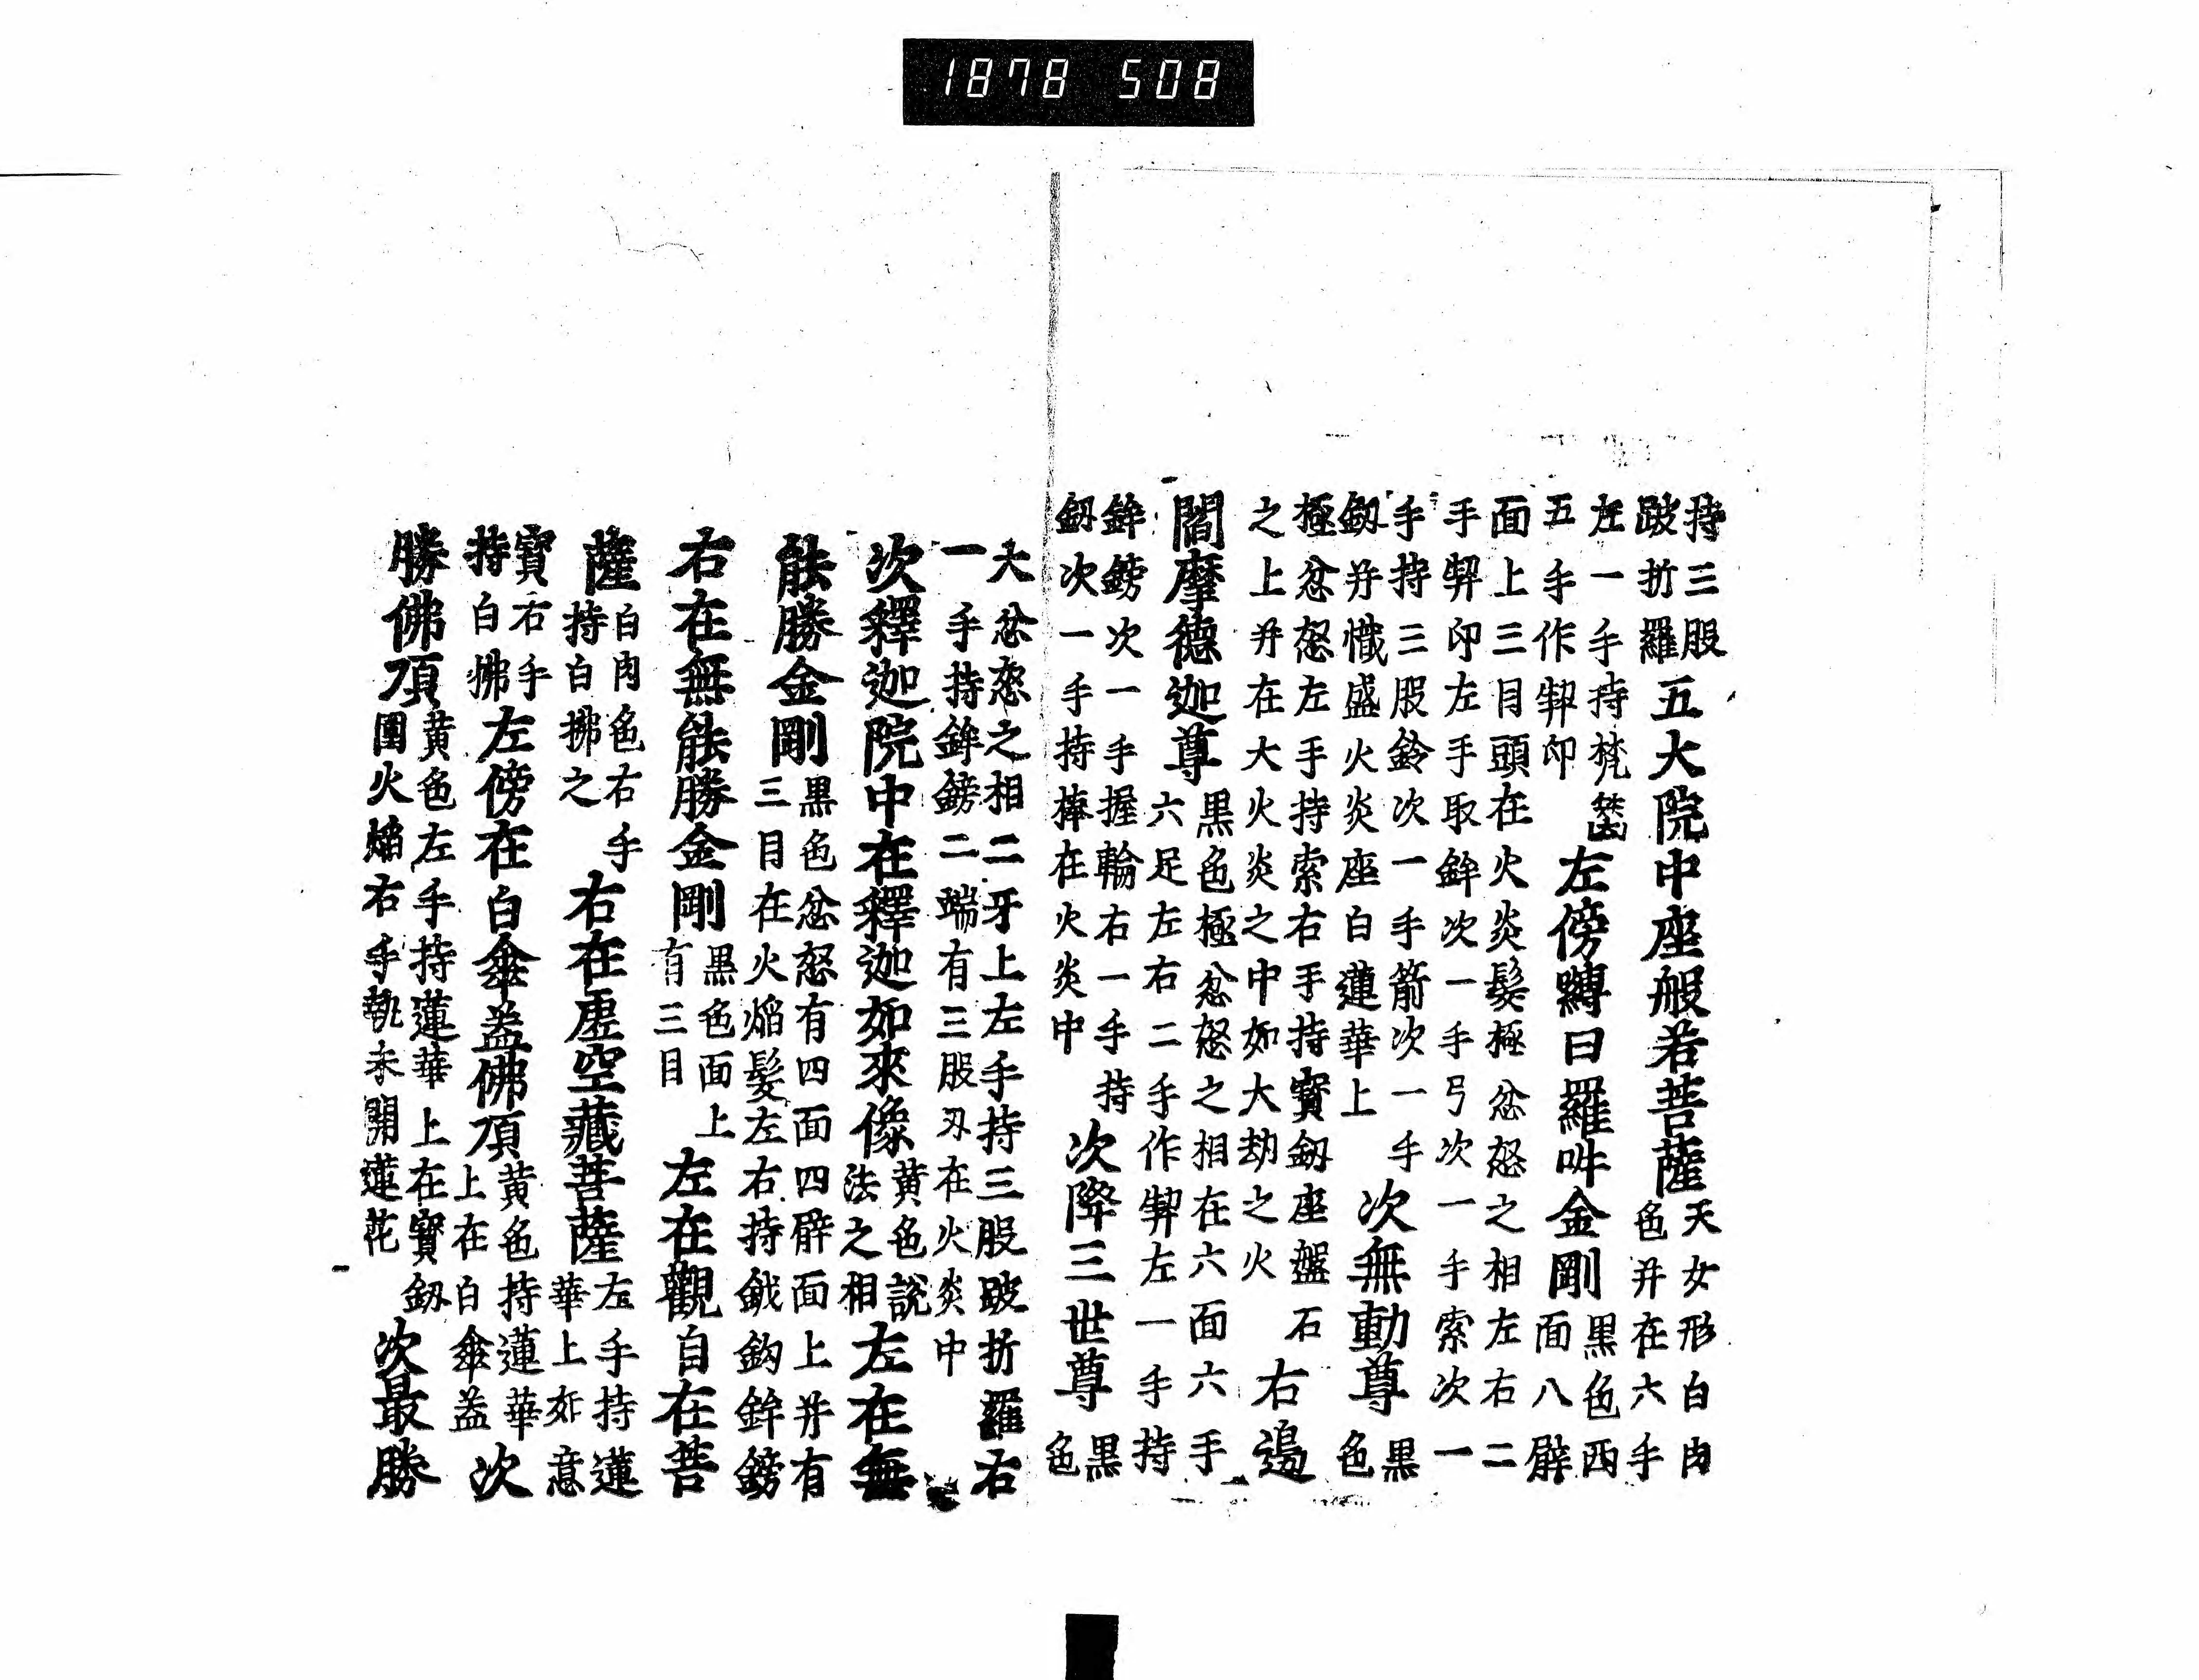 1878 508
持三股跛折羅五大院中座般若菩薩天女形白肉色并在六手
左一手持梵篋五手作契印左傍縛日羅吽金剛黒色西面八臂
面上三目頭在火炎髪極忿怒之相左右二手契印左手取鉾次一手弓次一手索次一
手持三股鈴次一手箭次一手釼并熾盛火炎座白蓮華上次無動尊黒色
極忿怒左手持索右手持寶釼座盤石之上并在大火炎之中如大劫之火右邊
閻摩德迦尊黒色極忿怒之相在六面六手六足左右二手作契左一手持
鉾鎊次一手握輪右一手持釼次一手持棒在火炎中次降三世尊黒色
大忿怒之相二牙上左手持三股跛折羅右一手持鉾鎊二端有三股刃在火炎中
次釋迦院中在釋迦如來像黄色説法之相左在無
能勝金剛黒色忿怒有四面四臂面上并有三目在火焔髪左右持鉞鈎鉾鎊
右在無能勝金剛黒色面上有三目左在觀自在菩
薩白肉色右手持白拂之右在虚空藏菩薩左手持蓮華上如意
寶右手持白拂左傍在白傘盖佛頂黄色持蓮華上在白傘盖次
勝佛頂黄色左手持蓮華上在寶釼圍火焔右手執未開蓮花次最勝